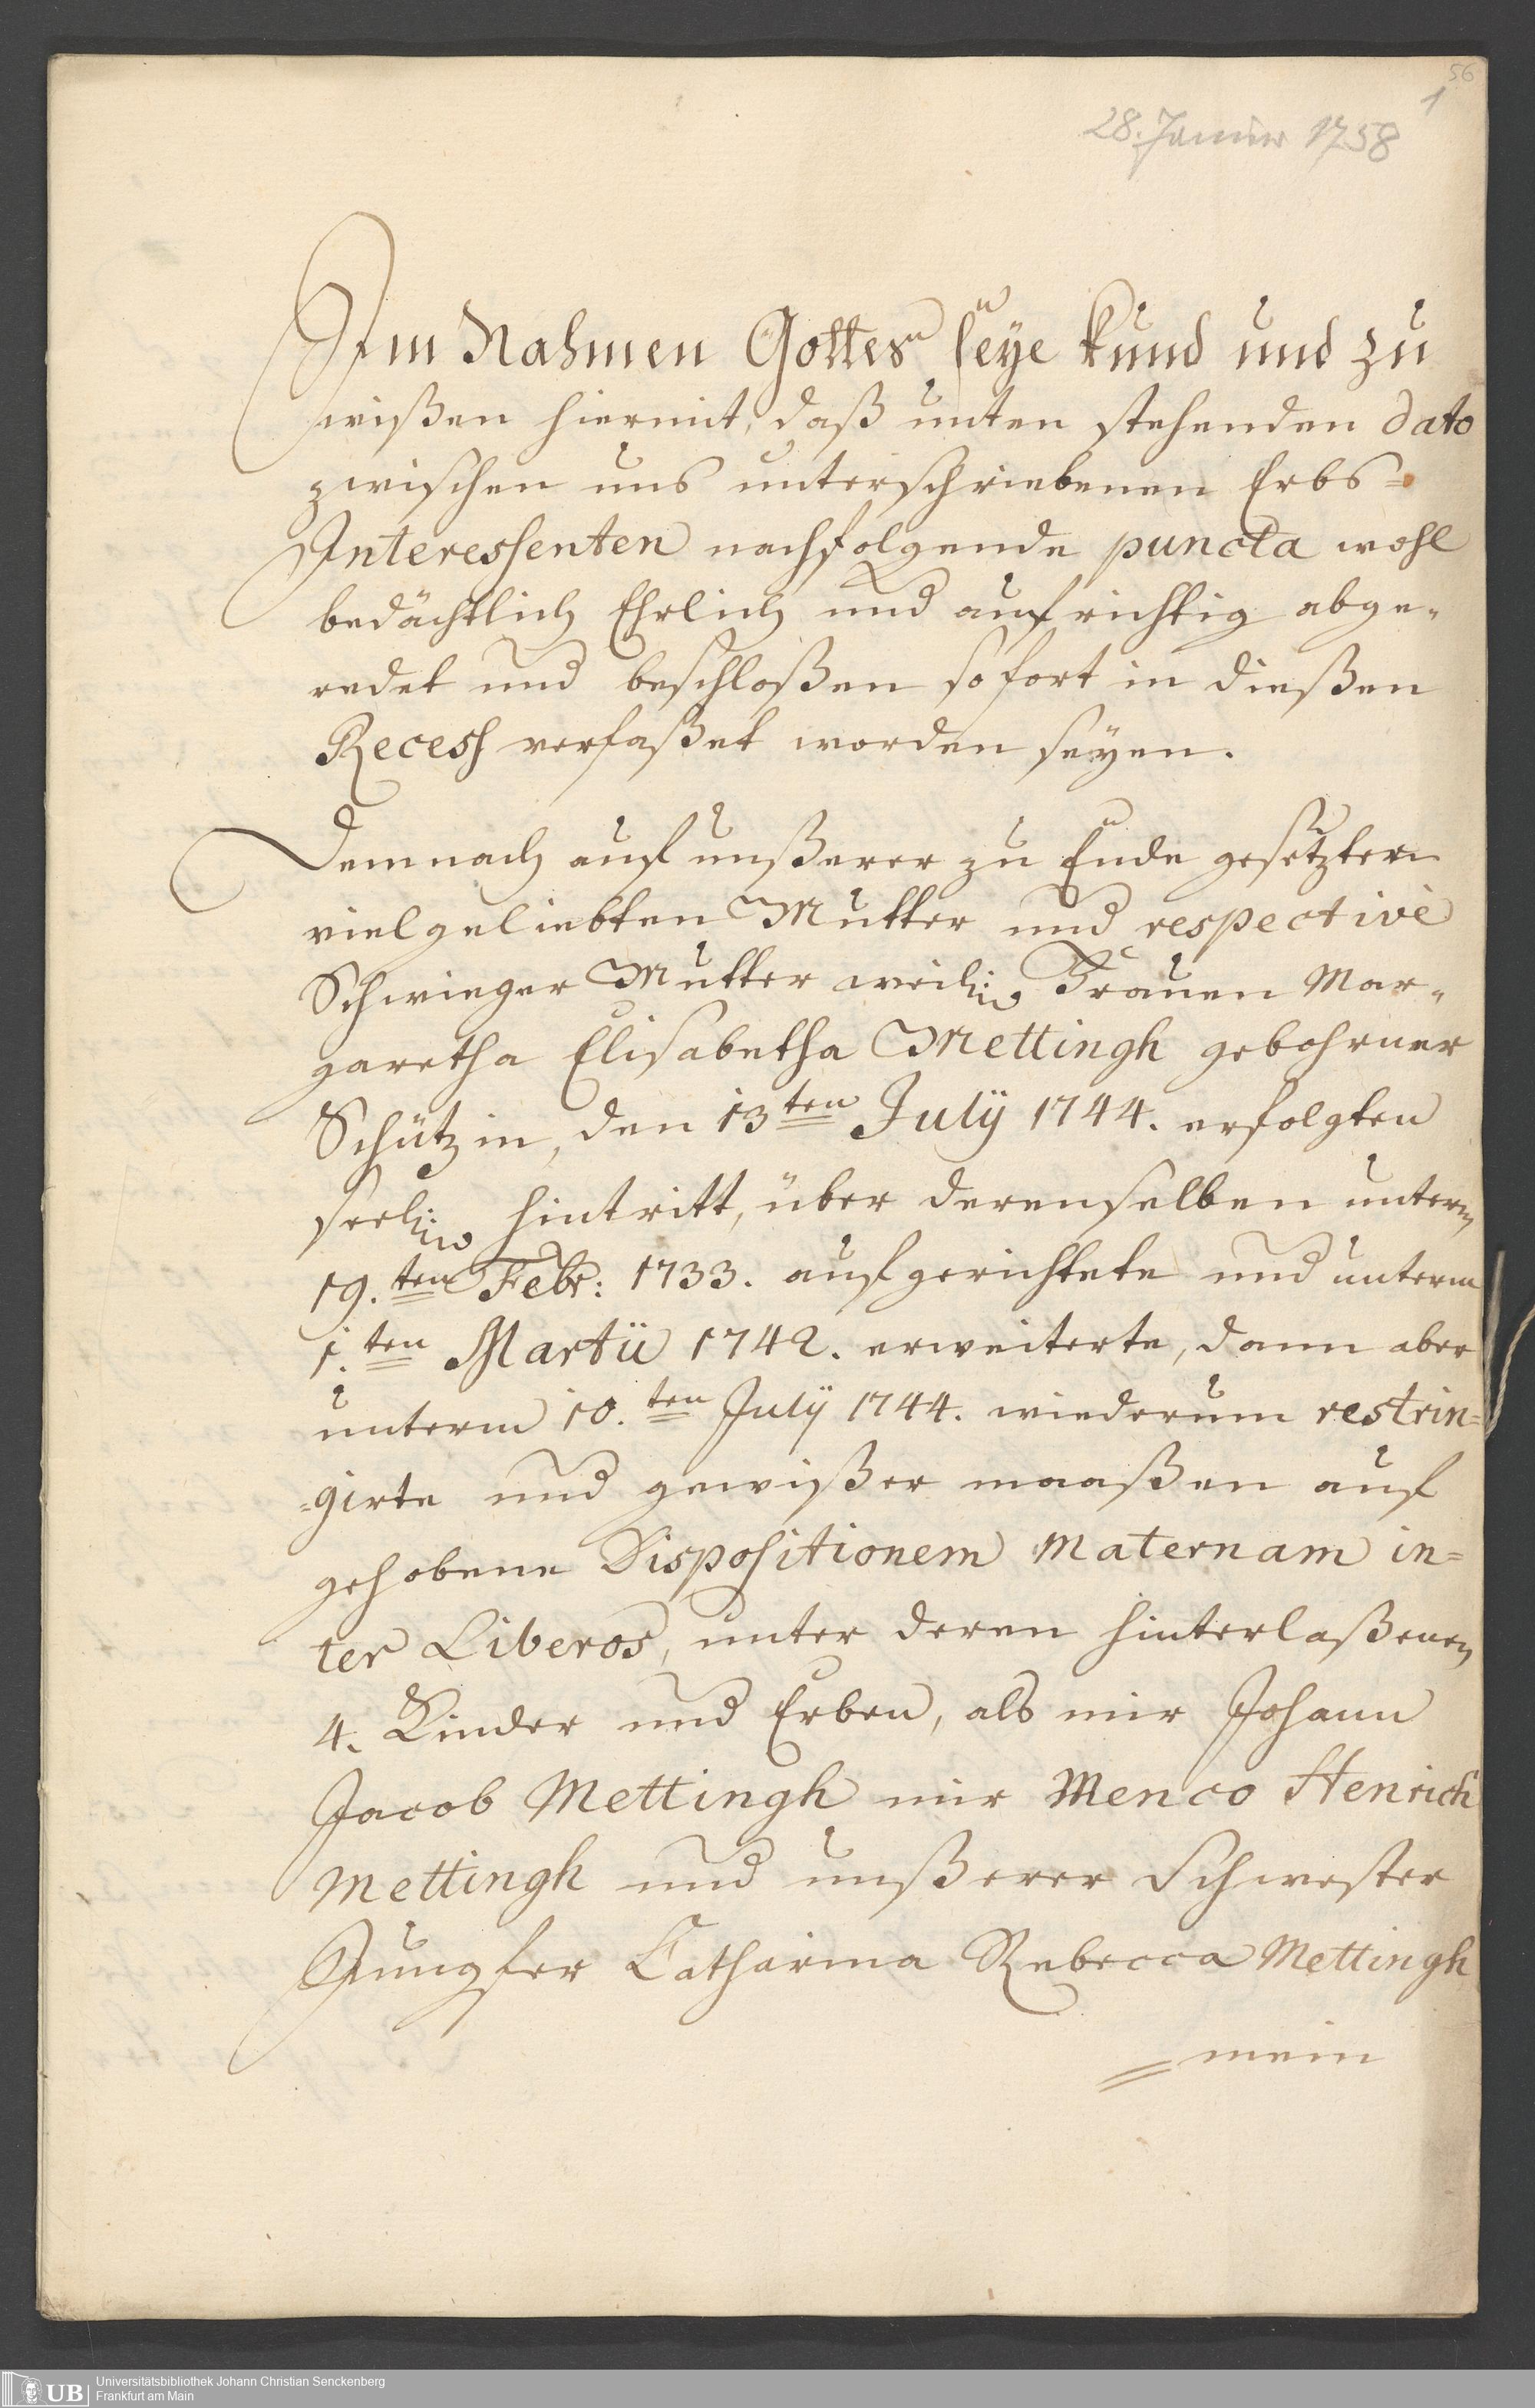 56
1
28. Januar 1758
Im Nahmen Gottes seÿe kund und zu
wißen hiermit, daß unten stehenden dato
zwischen uns unterschriebenen Erbs=
Interessenten nachfolgende puncta wohl
bedächtlich Ehrlich und aufrichtig abge-
redet und beschloßen sofort in dießen
Recess verfaßet worden seyen.
Demnach auf unßerer zu Ende gesetzter
vielgeliebten Mutter und respectivè
Schwieger Mutter weil: Frauen Mar-
garetha Elisabetha Mettingh gebohrner
Schützin, den 13ten Julÿ 1744. erfolgten
seel: hintritt, über derenselben unterm
19.ten Febr: 1733. aufgerichtete und unterm
1.ten Martii 1742. erweiterte, dann aber
unterm 10.ten Julÿ 1744. wiederum restrin=
=girte und gewißer maaßen auf
gehobene Dispositionem Maternam in=
ter Liberos, unter deren hinterlaßenen
4. Kinder und Erben, als mir Johann
Jacob Mettingh mir Menco Henrich
Mettingh und unßerer Schwester
Jungfer Catharina Rebecca Mettingh
= mein
UB
Universitätsbibliothek Johann Christian Senckenberg
Frankfurt am Main